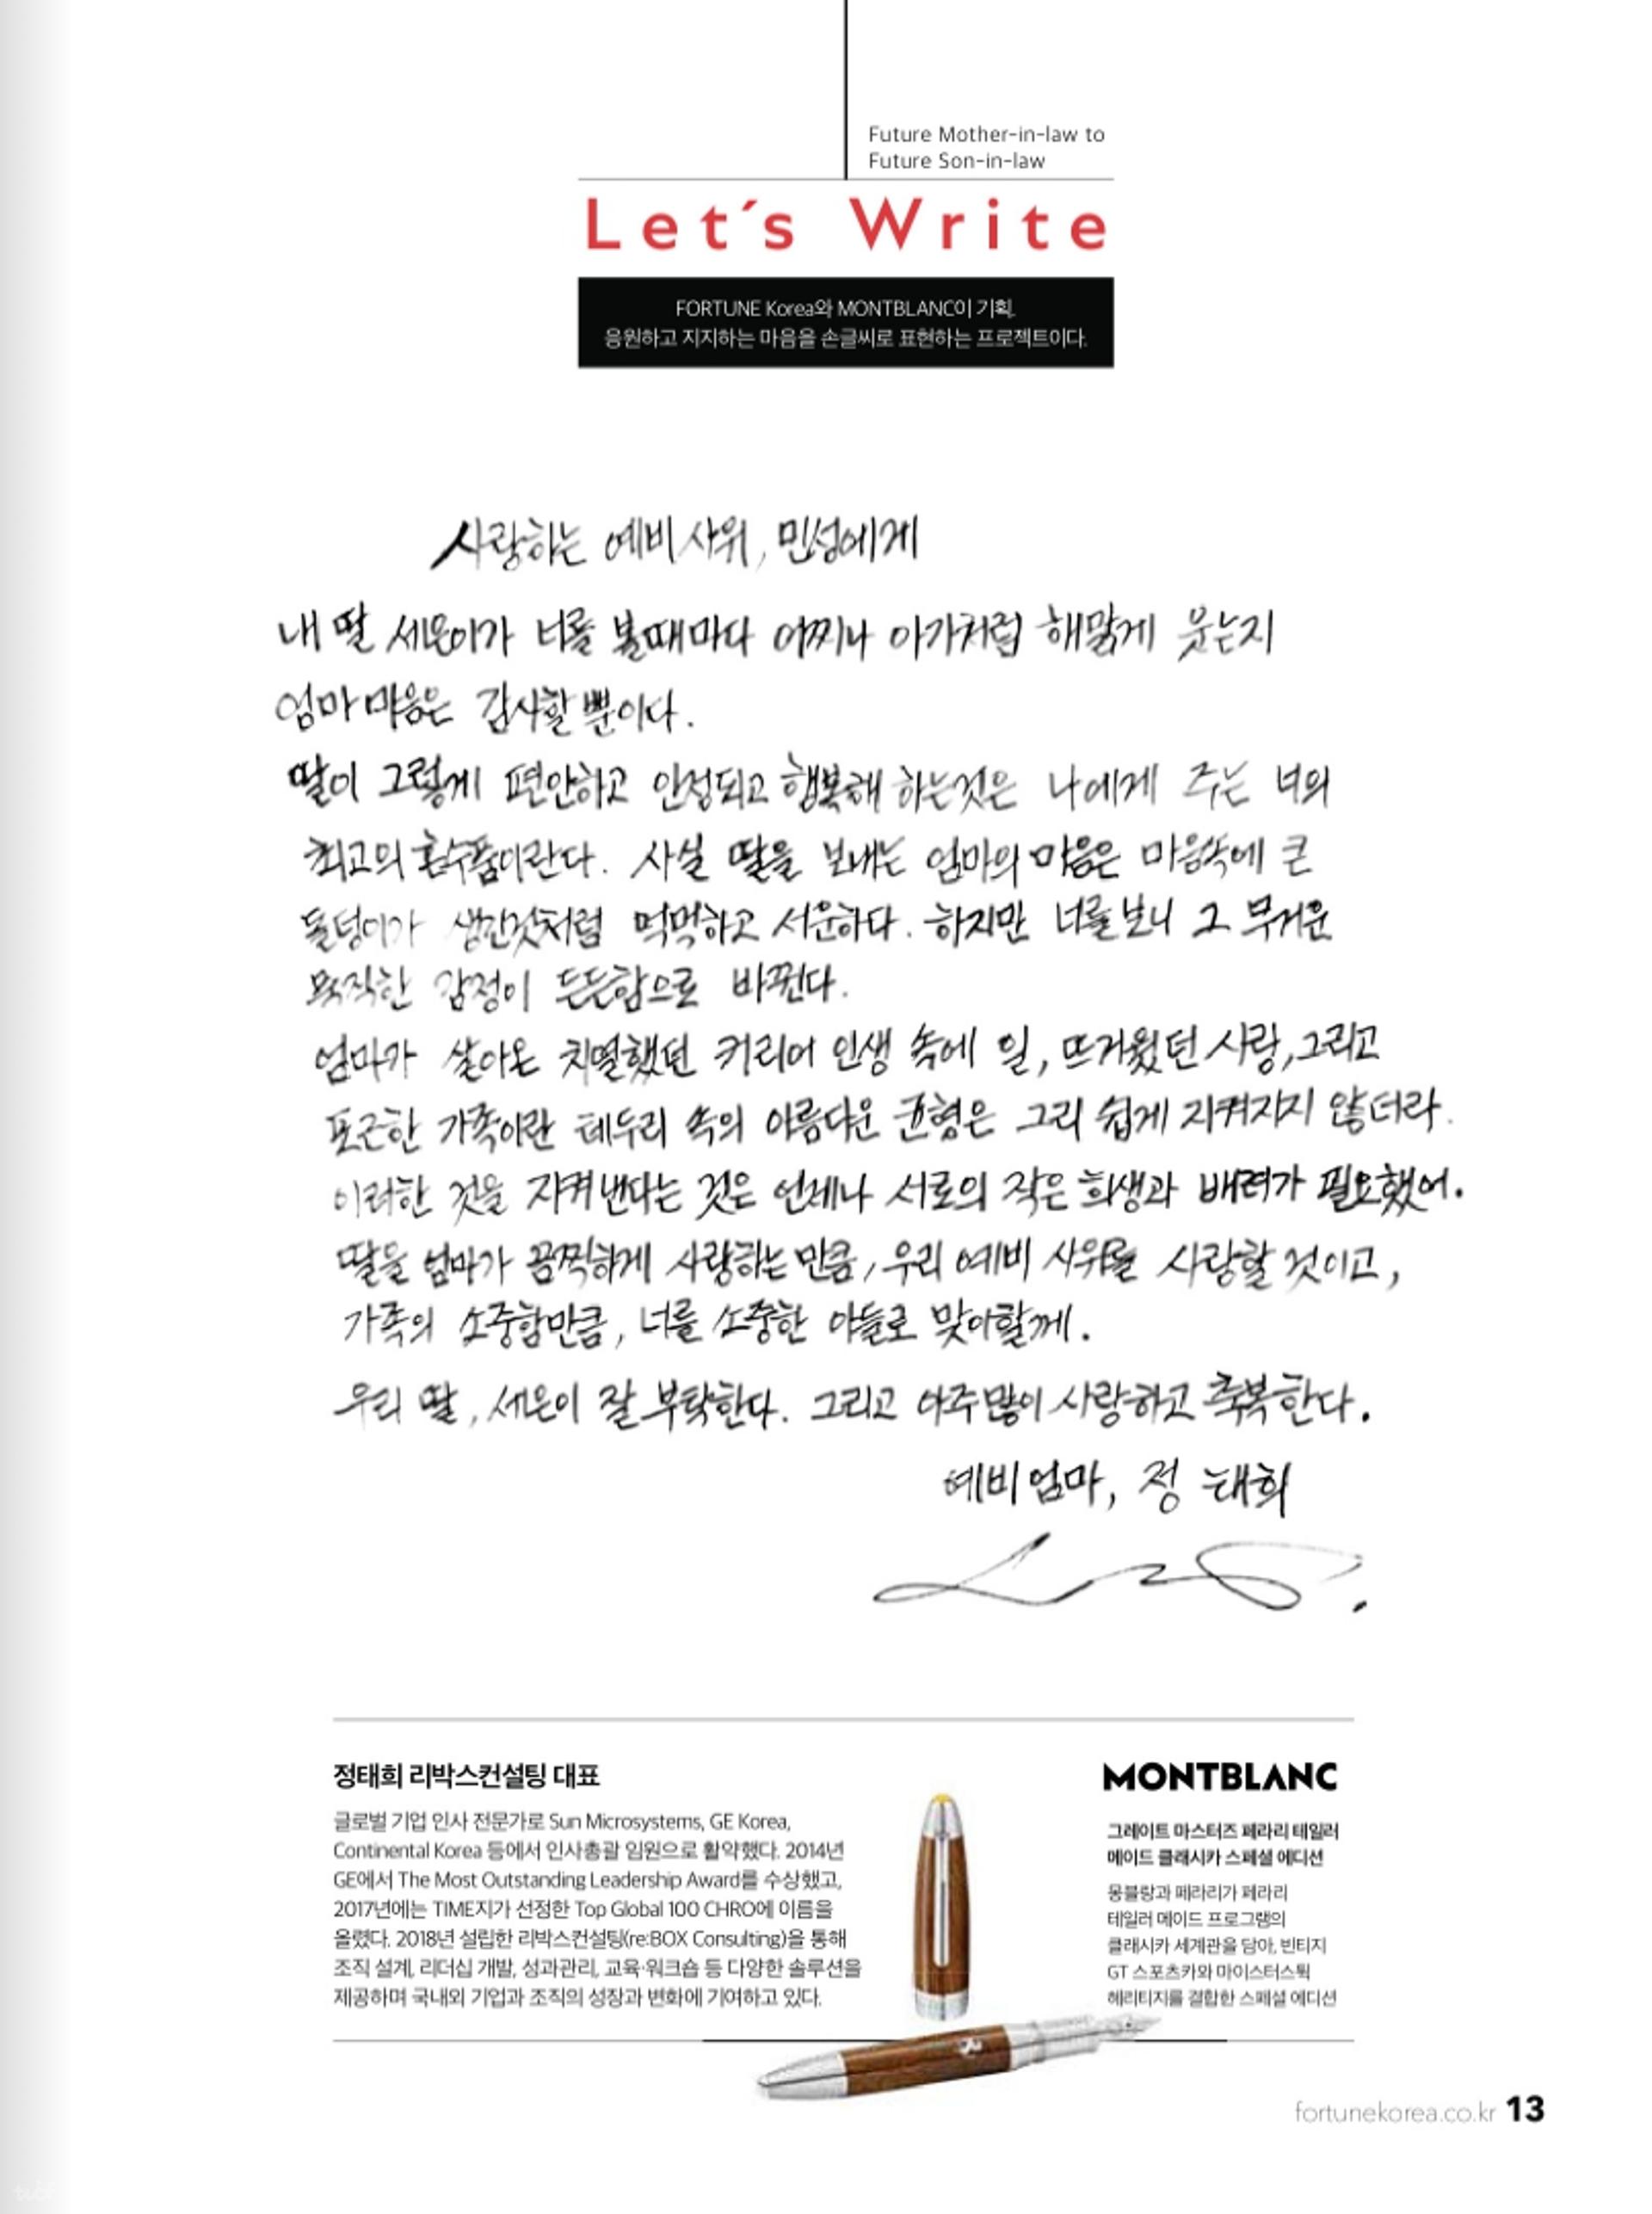 Future Mother-in-law to
Future Son-in-law
Let´s Write
FORTUNE Korea와 MONTBLANC이 기획.
응원하고 지지하는 마음을 손글씨로 표현하는 프로젝트이다.
사랑하는 예비사위, 민성에게
내 딸 세은이가 너를 볼때마다 어찌나 아가처럼 해맑게 웃는지
엄마 마음은 감사할 뿐이다.
딸이 그렇게 편안하고 안정되고 행복해 하는것은 나에게 주는 너의
최고의 혼수품이란다. 사실 딸을 보내는 엄마의 마음은 마음속에 큰
돌덩이가 생긴것처럼 먹먹하고 서운하다. 하지만 너를 보니 그 무거운
묵직한 감정이 든든함으로 바뀐다.
엄마가 살아온 치열했던 커리어 인생 속에 일, 뜨거웠던 사랑, 그리고
포근한 가족이란 테두리 속의 아름다운 균형은 그리 쉽게 지켜지지 않더라.
이러한 것을 지켜낸다는 것은 언제나 서로의 작은 희생과 배려가 필요했어.
딸을 엄마가 끔찍하게 사랑하는 만큼, 우리 예비 사위를 사랑할 것이고,
가족의 소중함만큼, 너를 소중한 아들로 맞이할께.
우리 딸, 세은이 잘 부탁한다. 그리고 아주 많이 사랑하고 축복한다.
예비엄마, 정 태희
정태희 리박스컨설팅 대표
글로벌 기업 인사 전문가로 Sun Microsystems, GE Korea,
Continental Korea 등에서 인사총괄 임원으로 활약했다. 2014년
GE에서 The Most Outstanding Leadership Award를 수상했고,
2017년에는 TIME지가 선정한 Top Global 100 CHRO에 이름을
올렸다. 2018년 설립한 리박스컨설팅(re:BOX Consulting)을 통해
조직 설계, 리더십 개발, 성과관리, 교육·워크숍 등 다양한 솔루션을
제공하며 국내외 기업과 조직의 성장과 변화에 기여하고 있다.
MONTBLANC
그레이트 마스터즈 페라리 테일러
메이드 클래시카 스페셜 에디션
몽블랑과 페라리가 페라리
테일러 메이드 프로그램의
클래시카 세계관을 담아, 빈티지
GT 스포츠카와 마이스터스튁
헤리티지를 결합한 스페셜 에디션
fortunekorea.co.kr 13